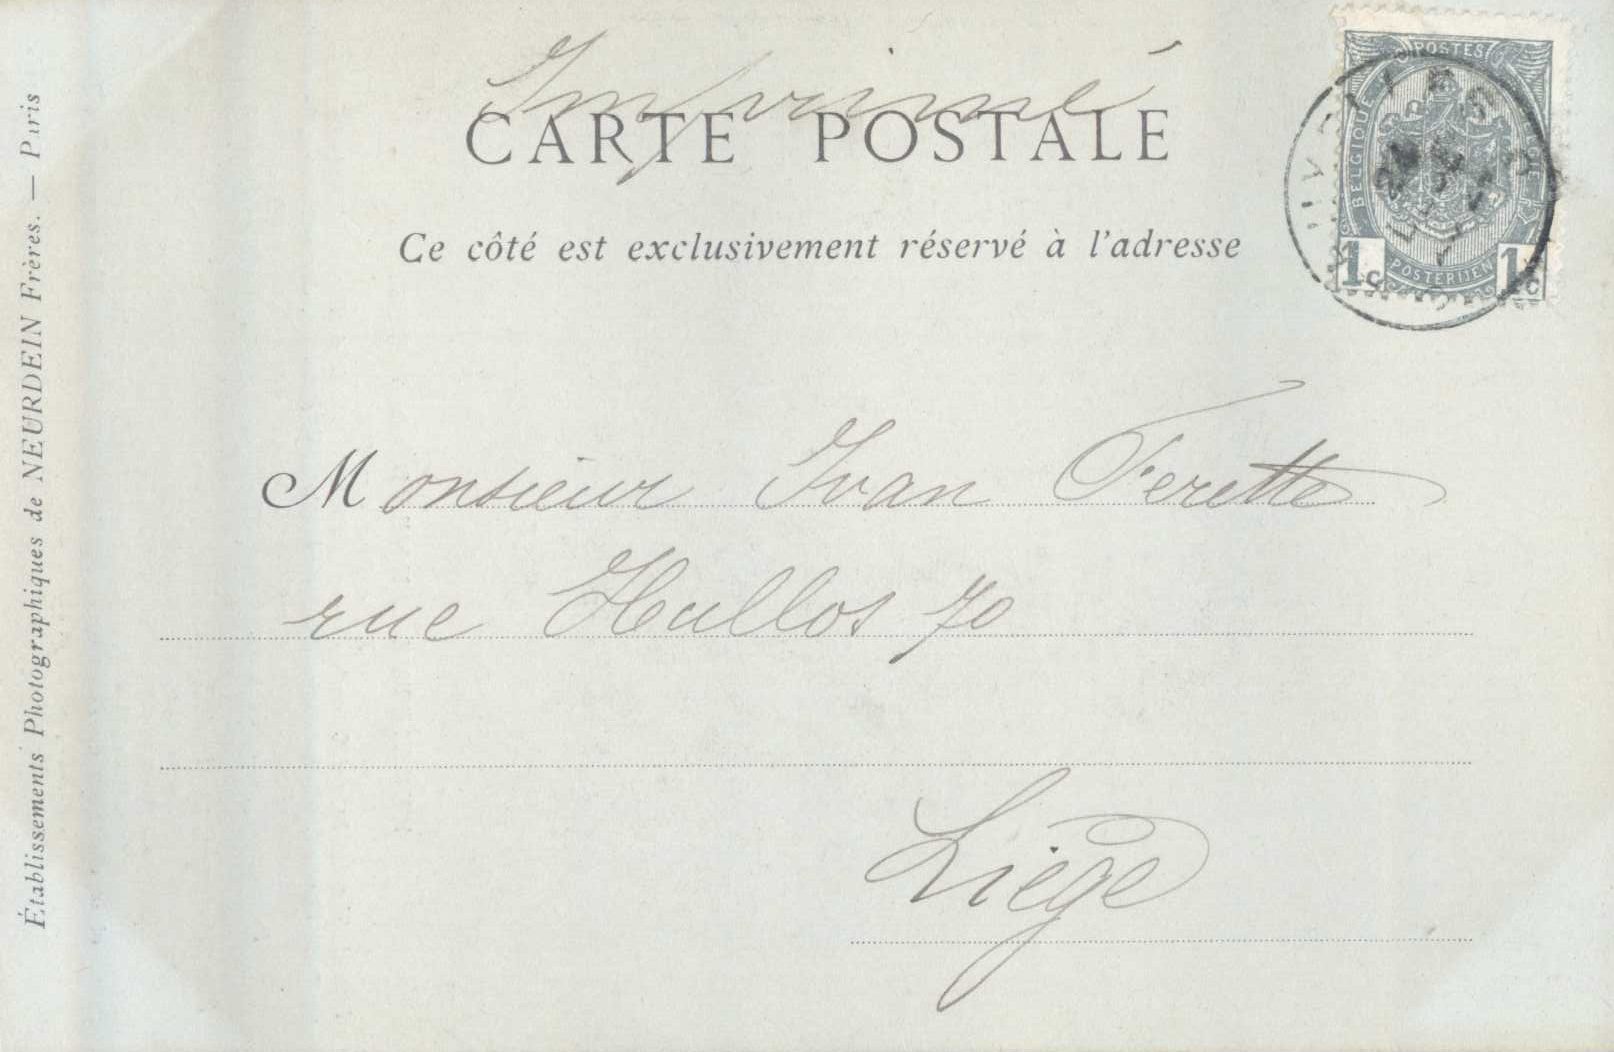 Imprimé
CARTE POSTALE
Ce côté est exclusivement réservé à l'adresse
POSTES
BELGIQUE
POSTERIJEN
1c 1c
Monsieur Ivan Ferette
rue Hullos 70
Liège
Établissements Photographiques de NEURDEIN Frères. — Paris